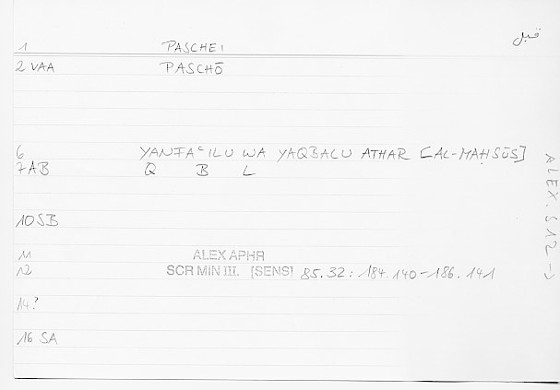 قبل
1 PASCHEI
2 VAA PASCHŌ
6 YANFAʿILU WA YAQBALU ATHAR [AL-MAḤSŪS]
7 AB Q B L
10 SB
11 ALEX APHR
12 SCR MIN III. [SENS] 85.32: 184.140-186.141
14?
16 SA
ALEX. S 12 →